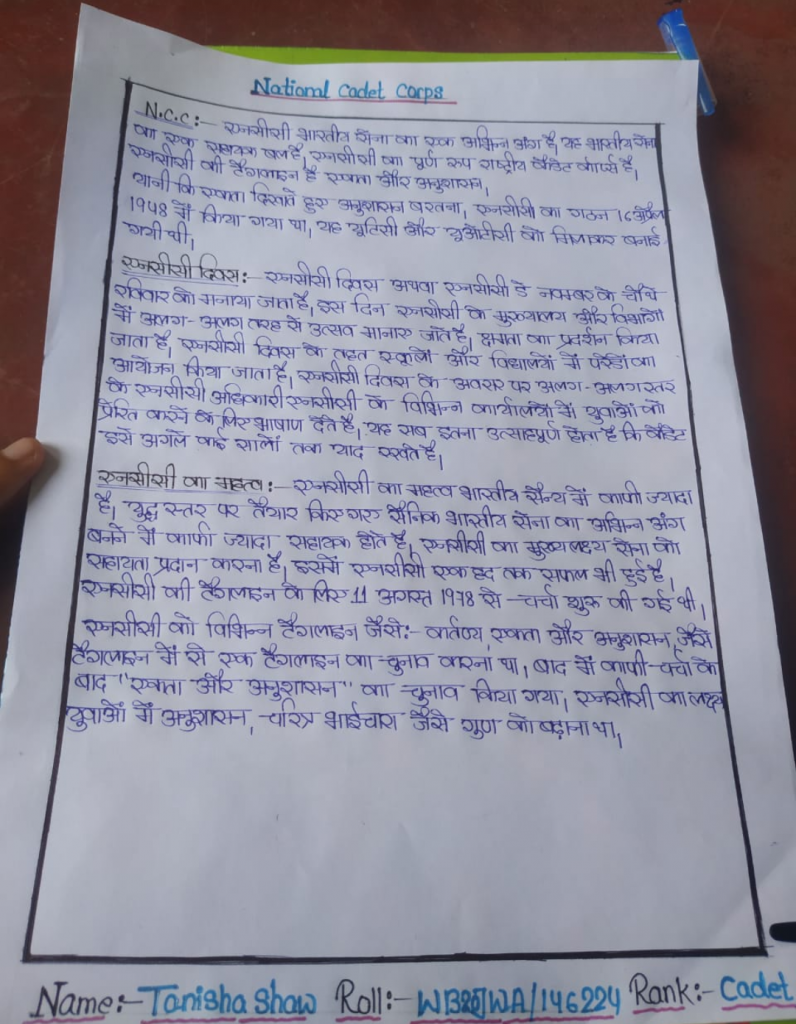 National Cadet Corps
N.C.C:- एनसीसी भारतीय सेना का एक अभिन्न अंग है, यह भारतीय सेना
का एक सहायक बल है, एनसीसी का पूर्ण रूप राष्ट्रीय कैडेट कोर्प्स है,
एनसीसी की टैगलाइन है एकता और अनुशासन,
यानी कि एकता दिखाते हुए अनुशासन बरतना, एनसीसी का गठन 16 अप्रैल
1948 में किया गया था, यह यूटिसी और यूओटीसी को मिलाकर बनाई
गयी थी,
एनसीसी दिवस:- एनसीसी दिवस अथवा एनसीसी डे नवम्बर के चौथे
रविवार को मनाया जाता है, इस दिन एनसीसी के मुख्यालय और विभागों
में अलग-अलग तरह से उत्सव मानाए जाते है, क्षमता का प्रदर्शन किया
जाता है, एनसीसी दिवस के तहत स्कूलों और विद्यालयों में परेडों का
आयोजन किया जाता है, एनसीसी दिवस के अवसर पर अलग-अलग स्तर
के एनसीसी अधिकारी एनसीसी के विभिन्न कार्यालयों में युवाओं को
प्रेरित करने के लिए भाषाण देते है, यह सब इतना उत्साहपूर्ण होता है कि कैडेट
इसे अगले कई सालों तक याद रखते है,
एनसीसी का महत्व:- एनसीसी का महत्व भारतीय सैन्य में काफी ज्यादा
है, युद्ध स्तर पर तैयार किए गए सैनिक भारतीय सेना का अभिन्न अंग
बनने में काफी ज्यादा सहायक होते है, एनसीसी का मुख्य लक्ष्य सेना को
सहायता प्रदान करना है, इसमें एनसीसी एक हद तक सफल भी हुई है,
एनसीसी की टैगलाइन के लिए 11 अगस्त 1978 से चर्चा शुरू की गई थी,
एनसीसी को विभिन्न टैगलाइन जैसे:- कर्तव्य, एकता और अनुशासन, जैसे
टैगलाइन में से एक टैगलाइन का चुनाव करना था, बाद में काफी चर्चा के
बाद "एकता और अनुशासन" का चुनाव किया गया, एनसीसी का लक्ष्य
युवाओं में अनुशासन, चरित्र भाईचारा जैसे गुण को बढ़ाना था,
Name:- Tanisha Shaw Roll:- WB20JWA/146224 Rank:- Cadet